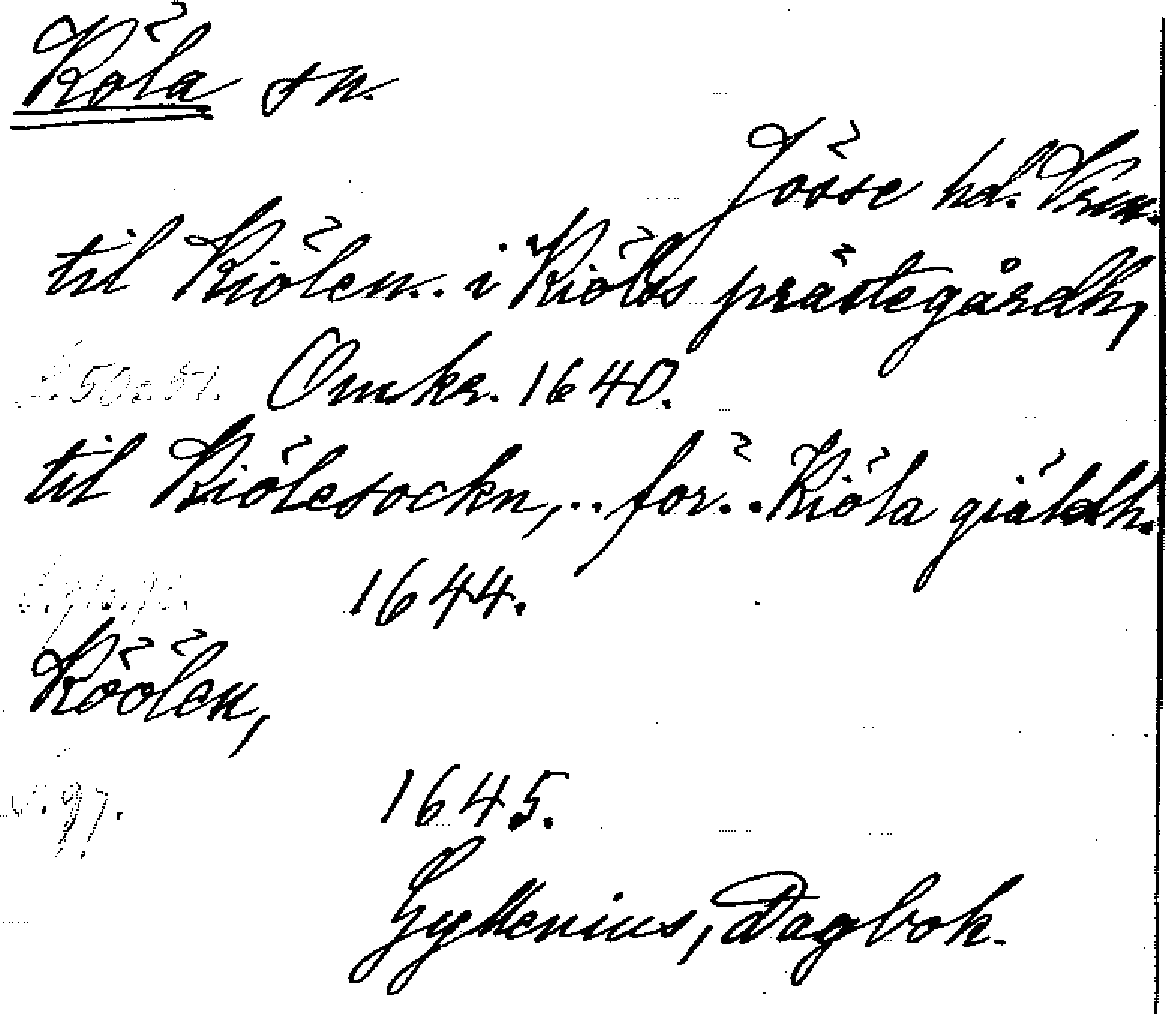 Köla sn.
Jösse hd. Vrm.
til Kiölen.. i Kiöls prästegårdh,
S. 50 o. 51. Omkr. 1640.
til Kiölesockn,.. för.. Kiöla giäldh.
1644.
Köölen,
S. 97.
1645.
Gyllenius, Dagbok.